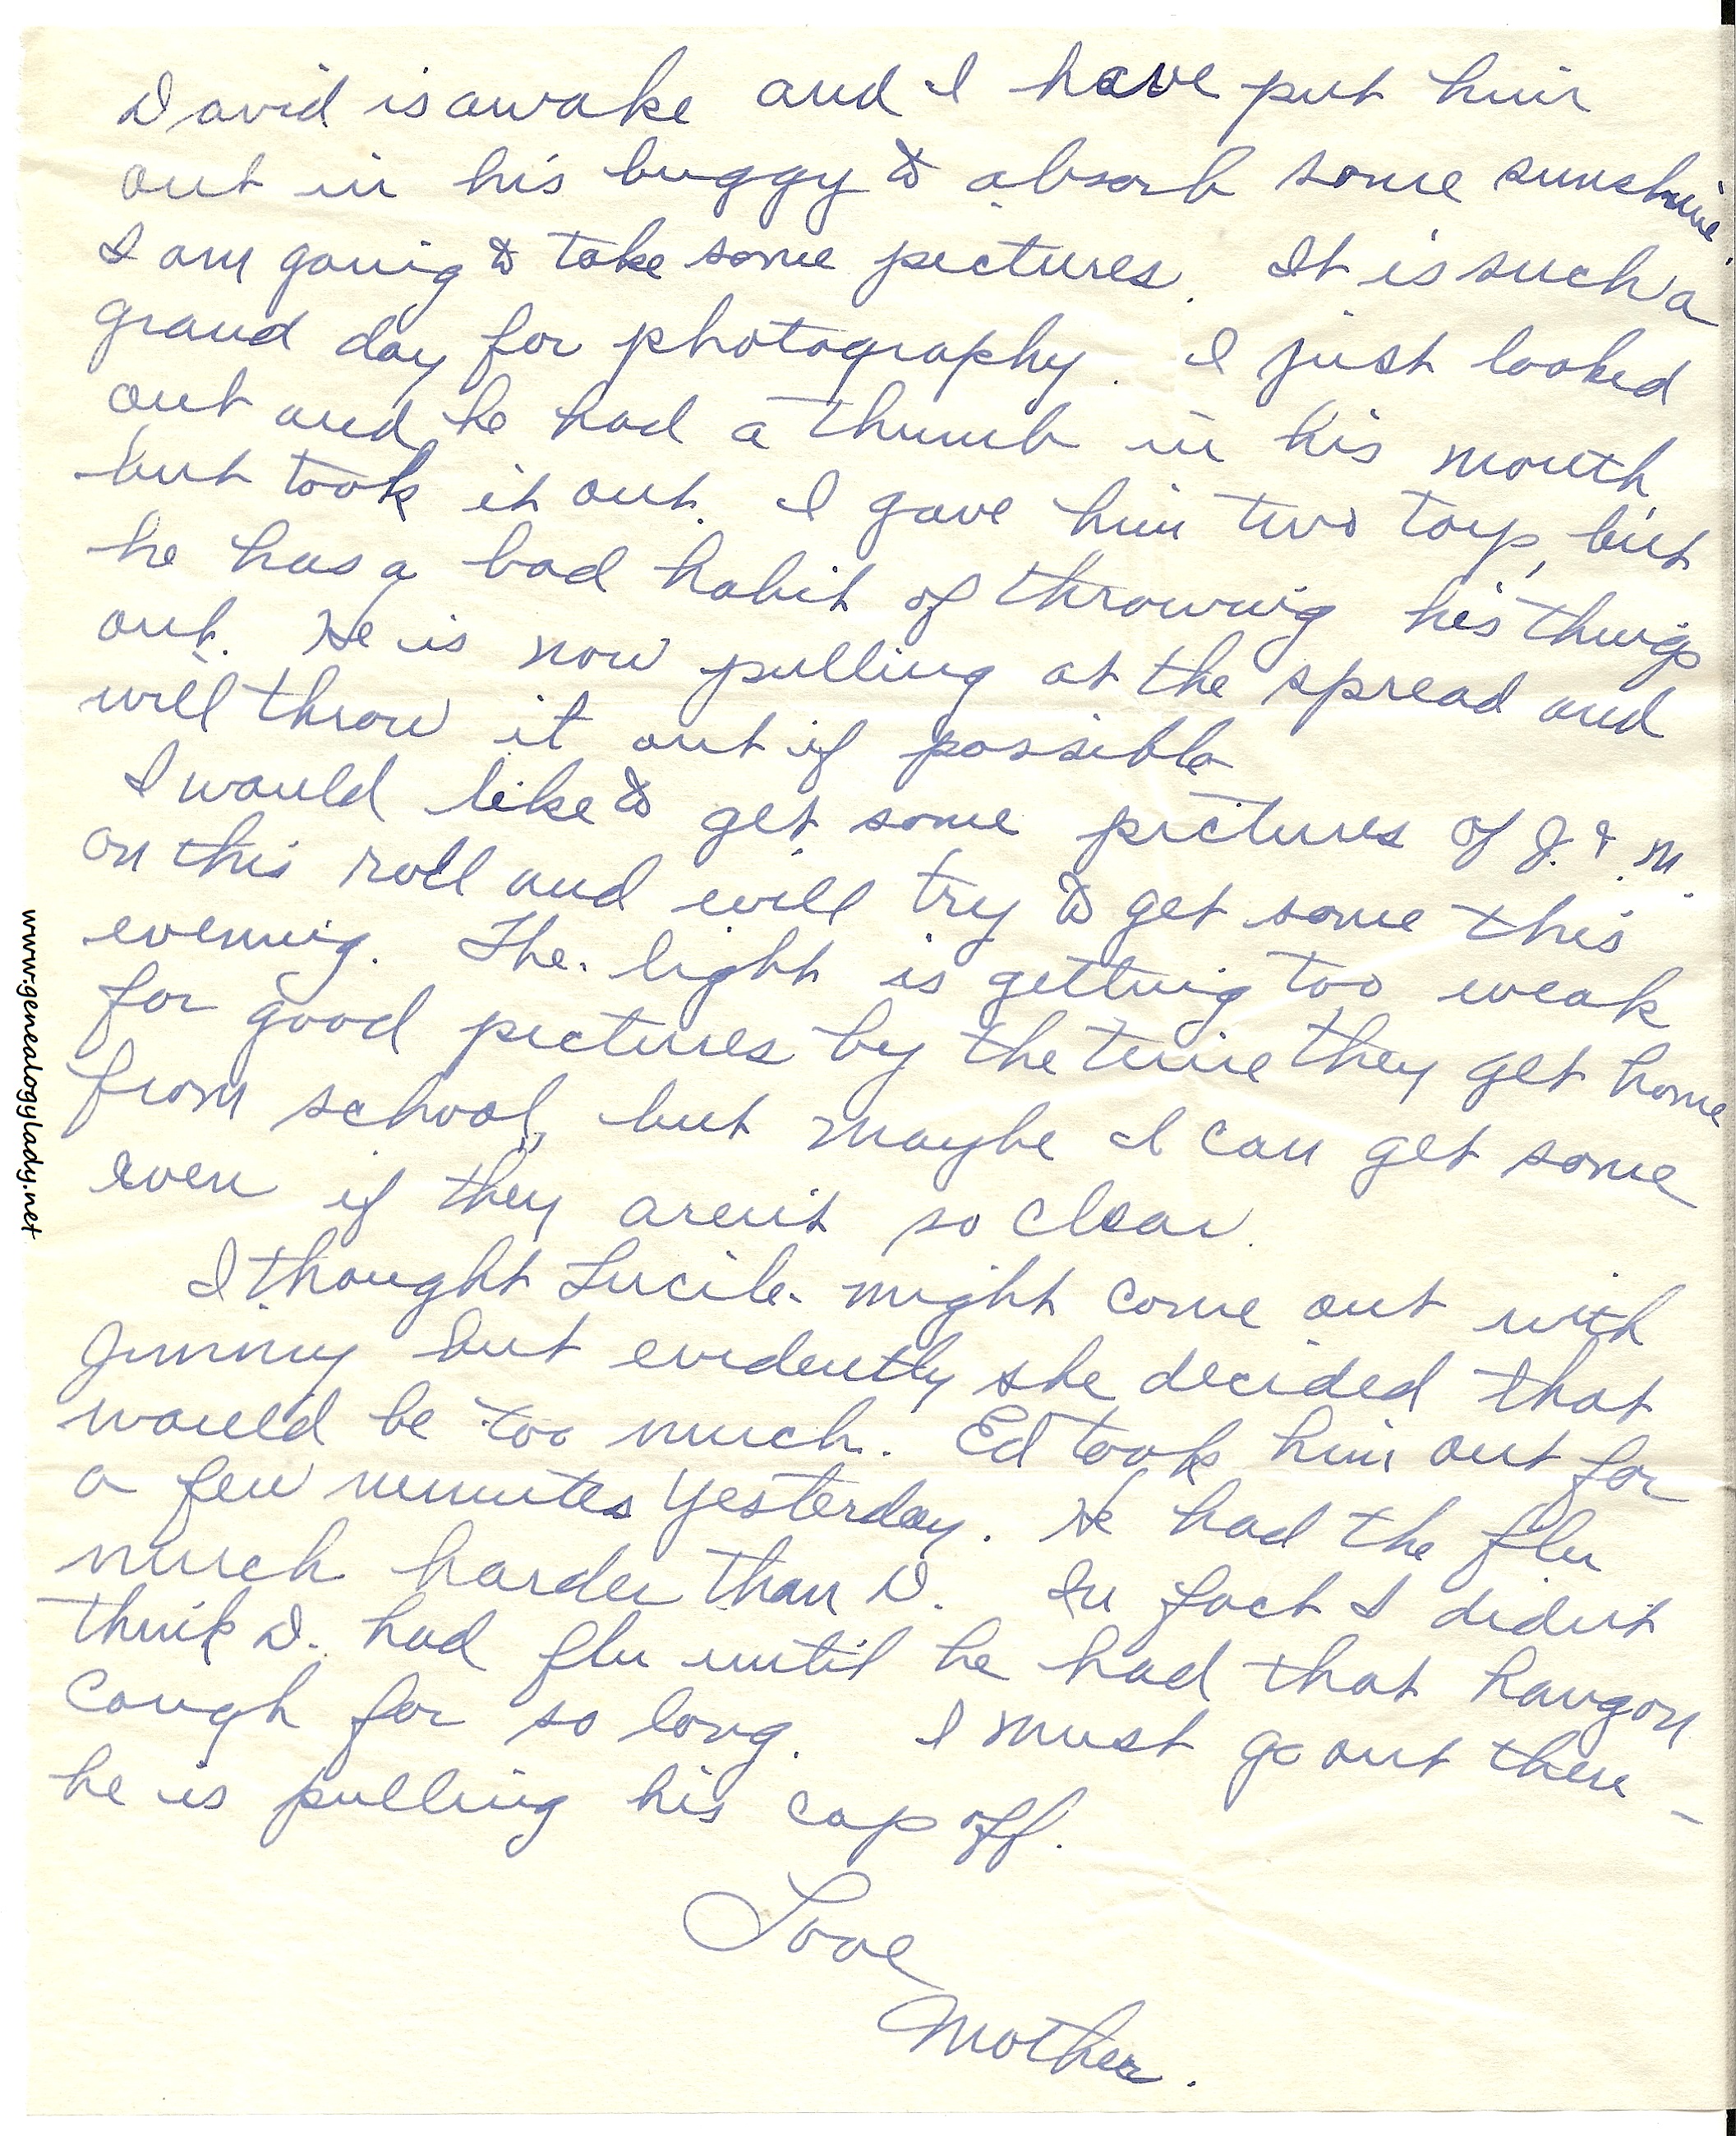 David is awake and I have put him
out in his buggy to absorb some sunshine.
I am going to take some pictures. It is such a
grand day for photography. I just looked
out and he had a thumb in his mouth
but took it out. I gave him two toys, but
he has a bad habit of throwing his things
out. He is now pulling at the spread and
will throw it out if possible
I would like to get some pictures of J. & M.
on this roll and will try to get some this
evening. The light is getting too weak
for good pictures by the time they get home
from school, but maybe I can get some
even if they aren't so clear.
I thought Lucile might come out with
Jimmy but evidently she decided that
would be too much. Ed took him out for
a few minutes yesterday. He had the flu
much harder than D. In fact I didn't
think D. had flu until he had that hangon
cough for so long. I must go out there –
he is pulling his cap off.
Love
Mother.
www.genealogylady.net